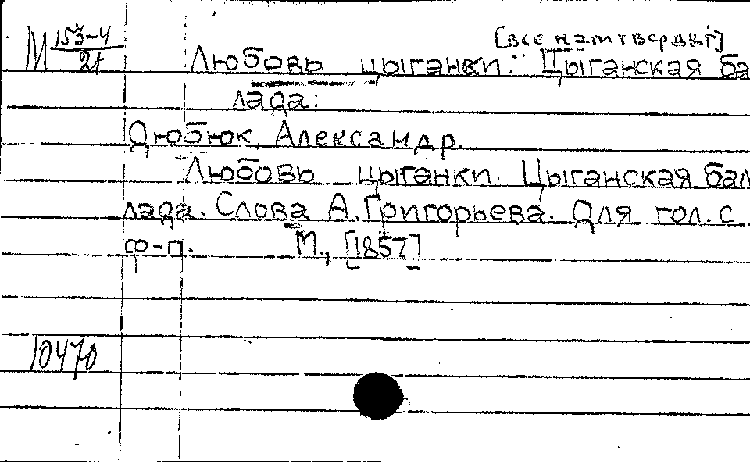 М 153-4/21
[все не твердят]
Любовь цыганки. Цыганская ба
лада:
Дюбюк, Александр.
Любовь цыганки. Цыганская бал
лада. Слова А. Григорьева. Для гол. с
ф-п. М., [1857]
10470